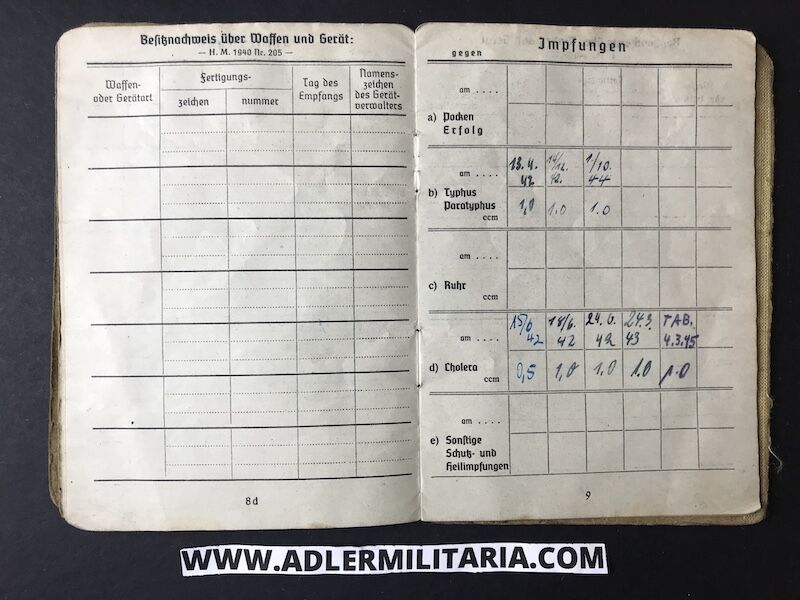 Besitznachweis über Waffen und Gerät:
— H. M. 1940 Nr. 205 —
Waffen-
oder Gerätart
Fertigungs-
zeichen
nummer
Tag des
Empfangs
Namens-
zeichen
des Gerät-
verwalters
8d
gegen
Impfungen
am . . . .
a) Pocken
Erfolg
am . . . .
13. 4. 14/12. 1/10.
42 42. 44
b) Typhus
Paratyphus
ccm
1,0 1.0 1.0
am . . . .
c) Ruhr
ccm
15/6 18/6. 24. 6. 24.3. TAB.
am . . . .
42 42 42 43 4.3.45
d) Cholera
ccm
0,5 1,0 1.0 1.0 1.0
am . . . .
e) Sonstige
Schutz- und
Heilimpfungen
9
WWW.ADLERMILITARIA.COM